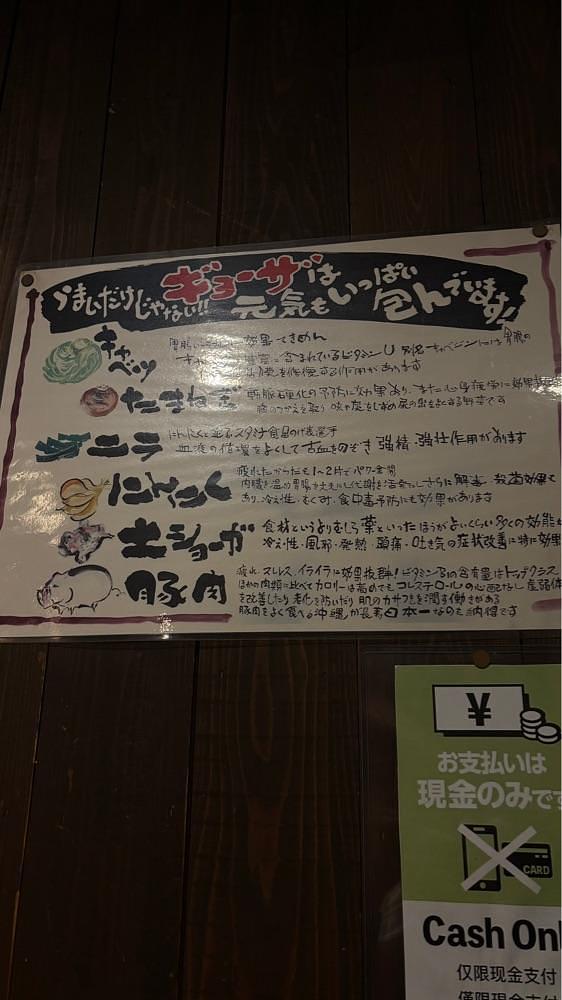 うまいだけじゃない!! ギョーザは元気もいっぱい包んでいます!
キャベツ
効果てきめん
含まれているビタミンU 別名 キャベジンには胃腸の
を修復する作用があります
たまねぎ
動脈硬化の予防に効果あり、また心身疲労に効果
ニラ
にんにくと並ぶスタミナ食品の代表選手
血液の循環をよくして古血をのぞき 強精・強壮作用があります
にんにく
疲れたからだも1〜2片でパワー全開
さらに解毒、殺菌効果も
あり、冷え性、むくみ、食中毒予防にも効果があります
土ショーガ
食材というよりむしろ薬といったほうがよいくらい多くの効能を
冷え性・風邪・発熱・頭痛・吐き気の症状改善に特に効果
豚肉
疲れ、ストレス、イライラに効果抜群!ビタミンB1の含有量はトップクラス
ほかの肉類に比べてカロリーは高めでもコレステロールの心配なし
を改善したり 老化を防いだり 肌のカサつきを潤す働きがある
豚肉をよく食べる沖縄が長寿日本一なのも納得です
¥
お支払いは
現金のみです
CARD
Cash Onl
仅限现金支付
僅限現金支付